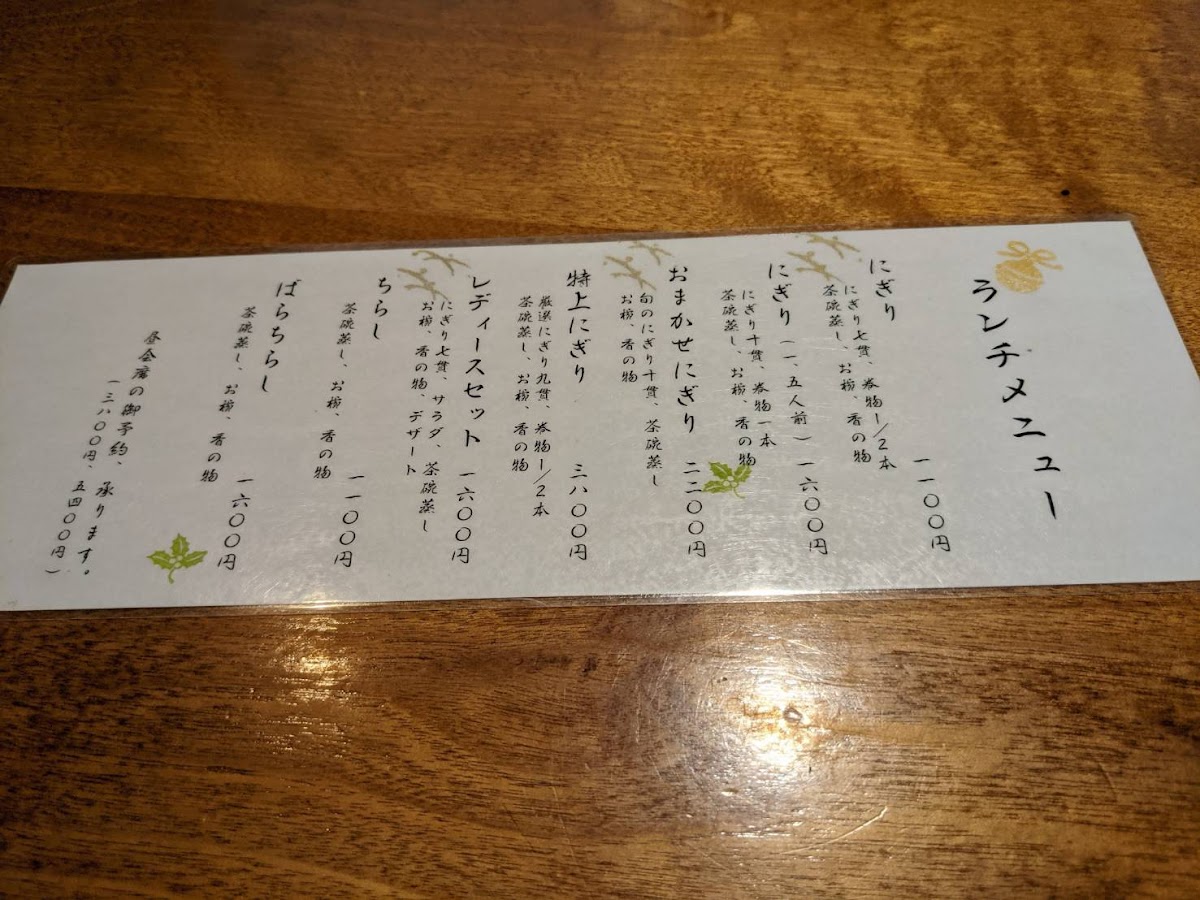 ランチメニュー
にぎり 一一〇〇円
にぎり七貫、巻物1/2本
茶碗蒸し、お椀、香の物
にぎり(一、五人前) 一六〇〇円
にぎり十貫、巻物一本
茶碗蒸し、お椀、香の物
おまかせにぎり 二二〇〇円
旬のにぎり十貫、茶碗蒸し
お椀、香の物
特上にぎり 三八〇〇円
厳選にぎり九貫、巻物1/2本
茶碗蒸し、お椀、香の物
レディースセット 一六〇〇円
にぎり七貫、サラダ、茶碗蒸し
お椀、香の物、デザート
ちらし 一一〇〇円
茶碗蒸し、お椀、香の物
ばらちらし 一六〇〇円
茶碗蒸し、お椀、香の物
昼会席の御予約、承ります。
(三八〇〇円、五四〇〇円)